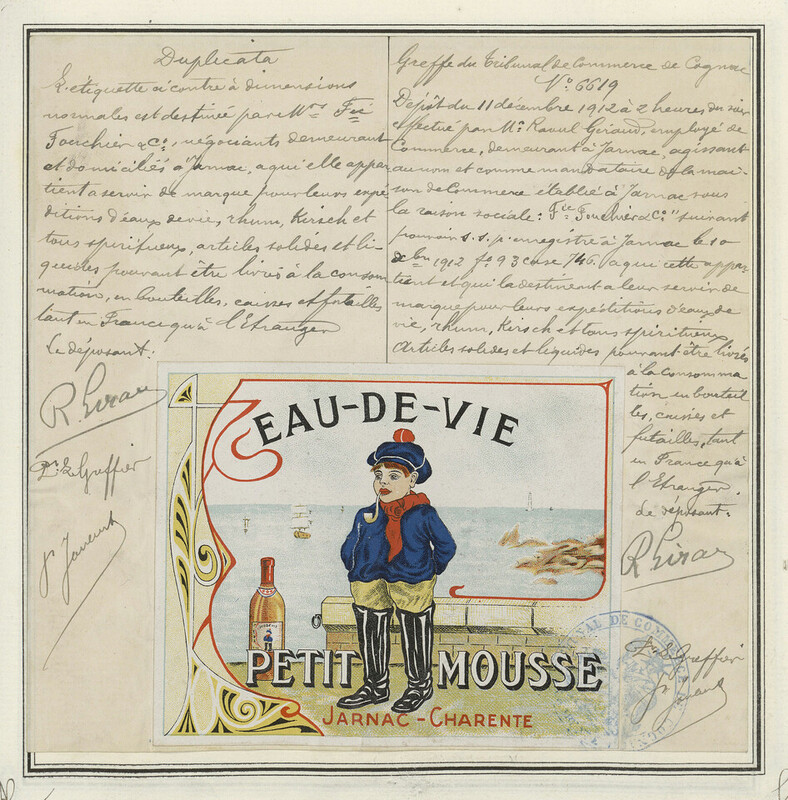 Duplicata
L'étiquette ci contre à dimensions
normales est destinée par Mrs Fçois
Fouchier & Co, négociants demeurant
et domiciliés à Jarnac, à qui elle appar
tient a servir de marque pour leurs expé
ditions d'eaux de vie, rhum, Kirsch et
tous spiritueux, articles solides et li-
quides pouvant être livrés à la consom
mation, en bouteilles, caisses et futailles
tant en France qu'à l'Etranger
Le déposant:
R. Giraud
Le Greffier
Greffe du Tribunal de Commerce de Cognac
No 6619
Dépôt du 11 décembre 1912 à 2 heures du soir
effectué par Mr Raoul Giraud, employé de
Commerce, demeurant à Jarnac, agissant
au nom et comme mandataire de la mai
son de Commerce établie à Jarnac sous
la raison sociale: "Fouchier & Co" suivant
pouvoir s.s.p. enregistré à Jarnac le 10
dcbre 1912 fo 93 case 746. à qui cette appar
tient et qui la destinent a leur servir de
marque pour leurs expéditions d'eaux de
vie, rhum, Kirsch et tous spiritueux
Articles solides et liquides pouvant être livrés
à la consomma
tion en bouteil
les, caisses et
futailles, tant
en France qu'à
l'Etranger.
Le déposant:
R. Giraud
Le Greffier
EAU-DE-VIE
PETIT MOUSSE
JARNAC - CHARENTE